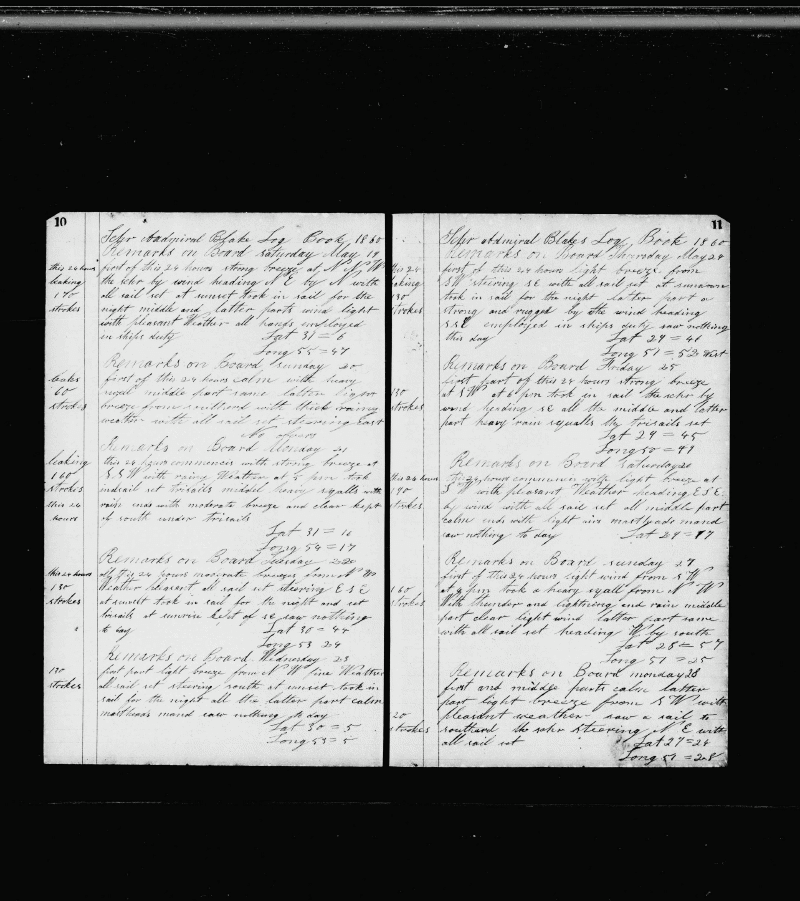 10
Schr Aadmiral Blake Log Book 1860
Remarks on Board Saturday May 19
this 24 hours part of this 24 hours strong breeze at N N W
leaking the schr by wind heading N E by N with
170 all sail set at sunset took in sail for the
strokes night middle and latter parts wind light
with pleasant Weather all hands employed
in ships duty Lat 31 = 6
Long 55 = 47
Remarks on Board Sunday 20
leaks first of this 24 hours calm with heavy
60 swell middle part same latter
strokes breeze from with thick rainy
weather with all sail set steering East
Remarks on Board Monday 21
leaking this 24 hours commences with strong breeze at
160 S S W with rainy Weather at 5 pm took
strokes set trisails middel heavy squalls with
this 24 rain ends with moderate breeze and clear kept
hours of south under trisails
Lat 31 = 10
Long 54 = 17
Remarks on Board Tuesday 22
this 24 hours of this 24 hours moderate breezes from N W
130 Weather pleasant all sail set steering E S E
strokes at sunset took in sail for the night and set
trisails at sunrise kept of SE saw nothing
to day Lat 30 = 44
Long 53 24
Remarks on Board Wednesday 23
120 first part light breeze from N W fine Weather
strokes all sail set steering south at sunset took in
sail for the night all the latter part calm
mastheads mand saw nothing to day
Lat 30 = 5
Long 53 = 5
11
Schr Admiral Blakes Log Book 1860
Remarks on Board Thursday May 24
this 24 first of this 24 hours light breeze from
leaking SW steering SE with all sail set at sundown
130 took in sail for the night latter part a
strokes strong and rugged by the wind heading
SSE employed in ships duty saw nothing
this day Lat 29 = 41
Long 51 = 52 West
Remarks on Board Friday 25
first part of this 24 hours strong breeze
130 at SW at 6 pm took in sail the schr by
strokes wind heading SE all the middle and latter
part heavy rain squalls the trisails set
Lat 29 = 45
Long 50 = 49
Remarks on Board Saturday 26
this 24 hours this 24 hours commences with light breeze at
190 S W with pleasant Weather heading E S E
strokes by wind with all sail set all middle part
calm ends with light airs mastheads mand
saw nothing to day Lat 29 = 17
Remarks on Board Sunday 27
first of this 24 hours light wind from S W
160 at 8 pm took a heavy squall from N W
strokes With thunder and lightning and rain middle
part clear light wind latter part same
with all sail set heading W by south
Lat 28 = 57
Long 51 = 25
Remarks on Board monday 28
first and middle parts calm latter
part light breeze from S W with
20 pleasant weather saw a sail to
strokes southard the schr steering N E with
all sail set Lat 27 = 24
Long 51 = 28